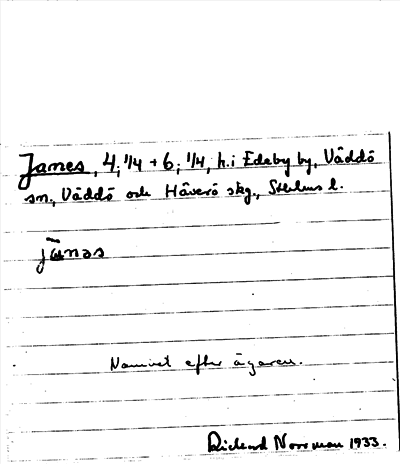 James, 4; 1/4 + 6; 1/4, h. i Edeby by, Väddö
sn., Väddö och Häverö skg., Sthlms l.
jā̈nəs
Namnet efter ägaren.
Rickard Norrman 1933.